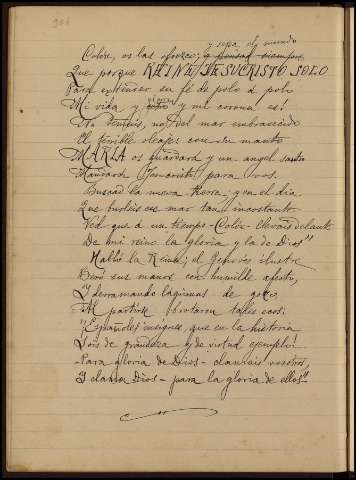 y sepa el mundo
Colón, os las ofrezco; a pensad siempre
Que porque REINE JESUCRISTO SOLO
Para extender su fé de polo á polo
Mi vida, y y mi corona es!
No temais, no, del mar embravecido
El terrible oleaje: con su manto
MARIA os guardará y un angel santo
Mandará para vos.
Buscad la nueva tierra: y en el día
Que burleis ese mar tan inconstante
Ved que á un tiempo - Colón - llevais delante
De mi reino la gloria y la de Dios"
Habló la Reina; el Genovés ilustre
Besó sus manos con humilde afecto,
Y derramando lágrimas de gozo,
Al partirse brotaron tales ecos:
"Españoles insignes, que en la historia
Sois de grandeza y de virtud ejemplo!
- Para gloria de Dios - clamais vosotros,
Y clama Dios - para la gloria de ellos"-